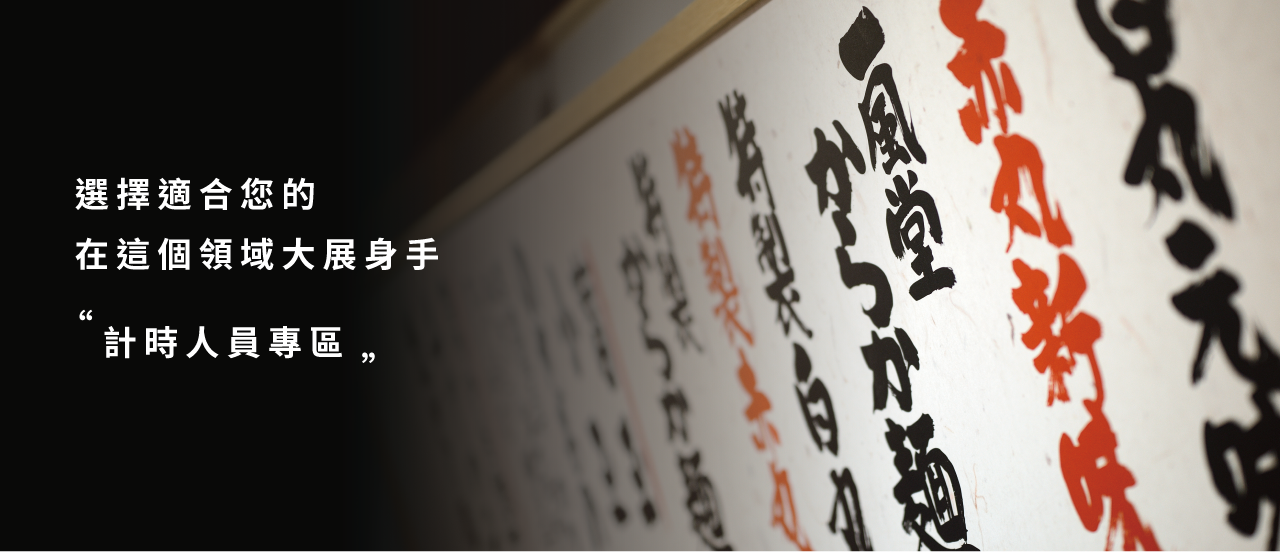 選擇適合您的
在這個領域大展身手
“計時人員專區„
白丸元味
赤丸新味
一風堂
からか麺
特製白丸
特製赤丸
特製
からか麺